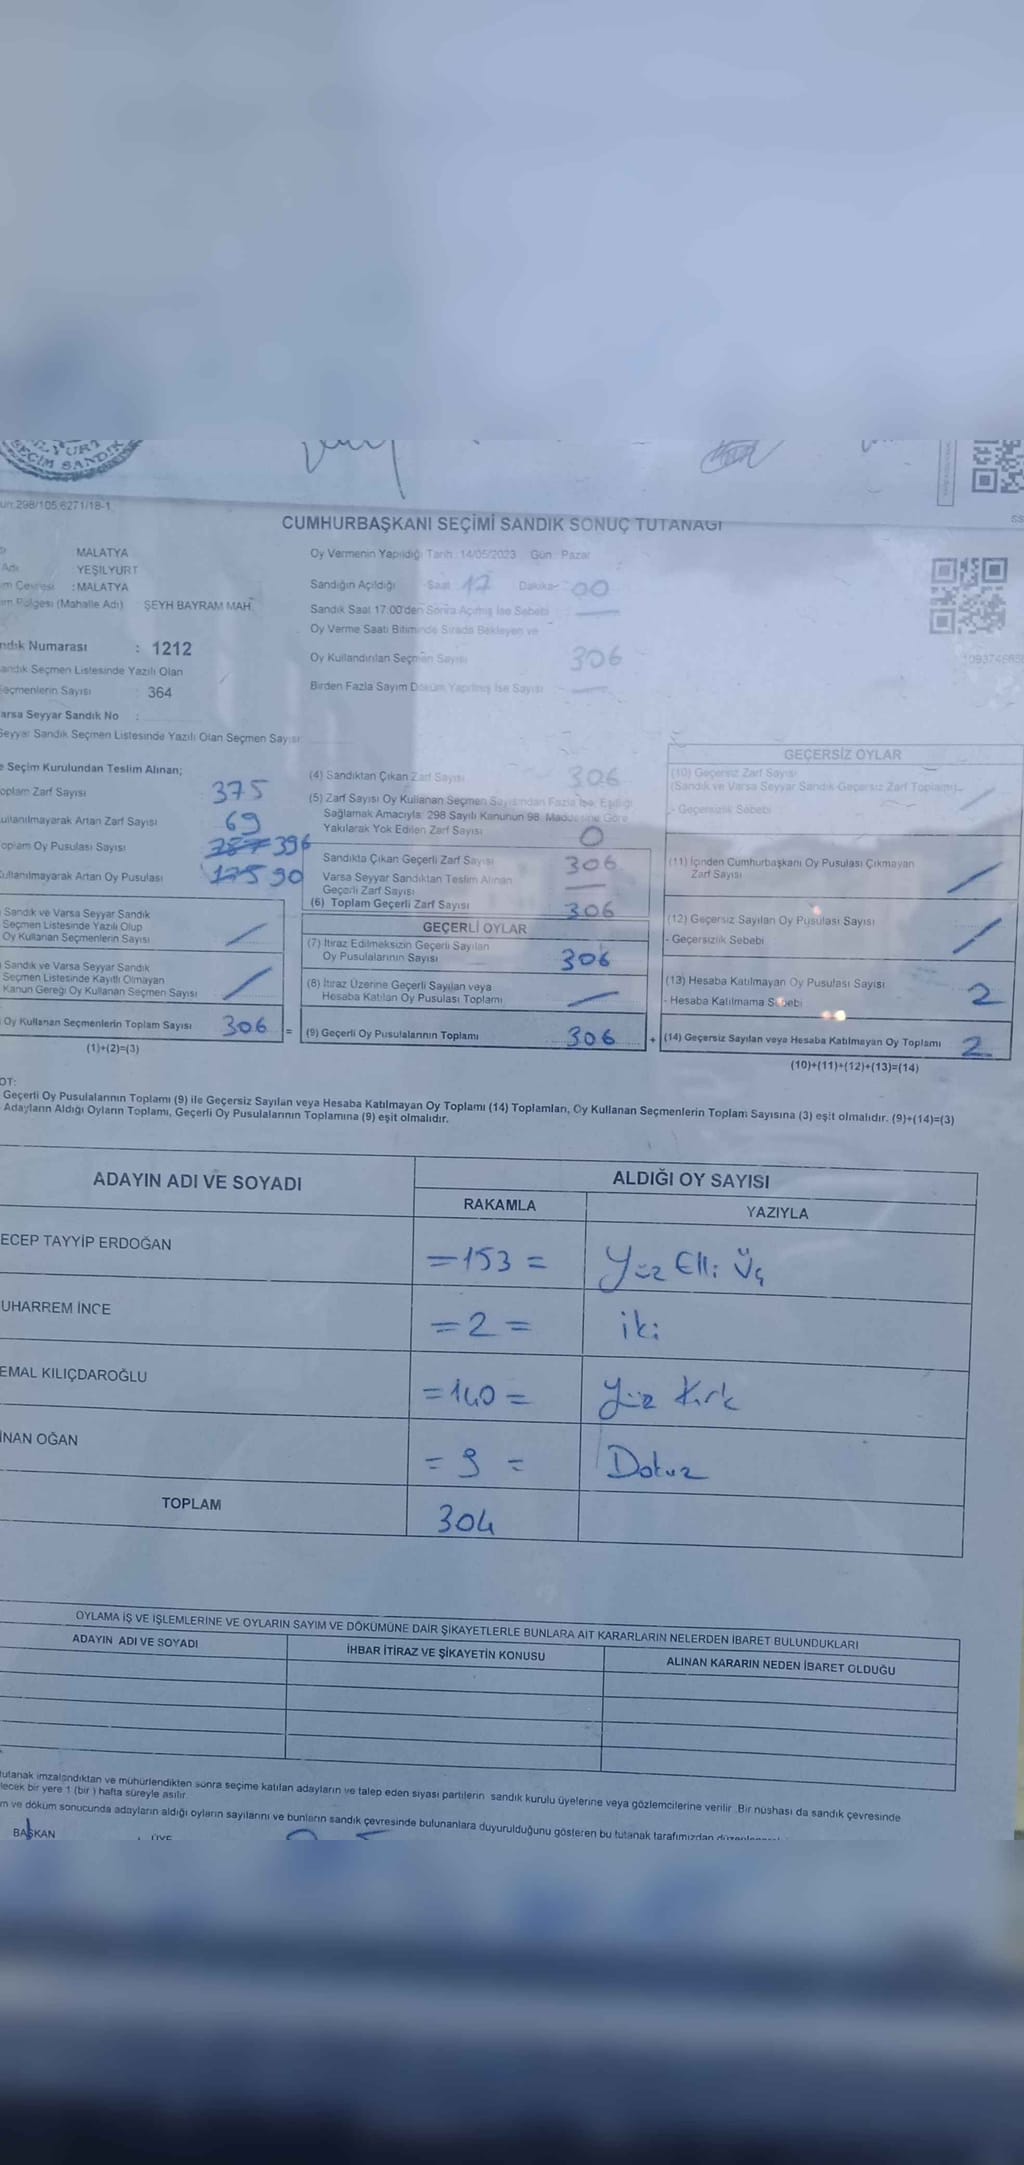 YURT
SEÇİM SANDIK
298/105,6271/18-1
CUMHURBAŞKANI SEÇİMİ SANDIK SONUÇ TUTANAĞI
MALATYA
Adı YEŞİLYURT
m Çevresi : MALATYA
im Bölgesi (Mahalle Adı) ŞEYH BAYRAM MAH.
ndık Numarası : 1212
andık Seçmen Listesinde Yazılı Olan
eçmenlerin Sayısı : 364
arsa Seyyar Sandık No :
Seyyar Sandık Seçmen Listesinde Yazılı Olan Seçmen Sayısı
Oy Vermenin Yapıldığı Tarih : 14/05/2023 Gün : Pazar
Sandığın Açıldığı Saat 17 Dakika 00
Sandık Saat 17:00'den Sonra Açılmış İse Sebebi
Oy Verme Saati Bitiminde Sırada Bekleyen ve
Oy Kullandırılan Seçmen Sayısı 306
Birden Fazla Sayım Döküm Yapılmış İse Sayısı
e Seçim Kurulundan Teslim Alınan;
oplam Zarf Sayısı 375
ullanılmayarak Artan Zarf Sayısı 69
oplam Oy Pusulası Sayısı 396
ullanılmayarak Artan Oy Pusulası 90
Sandık ve Varsa Seyyar Sandık
Seçmen Listesinde Yazılı Olup
Oy Kullanan Seçmenlerin Sayısı
Sandık ve Varsa Seyyar Sandık
Seçmen Listesinde Kayıtlı Olmayan
Kanun Gereği Oy Kullanan Seçmen Sayısı
Oy Kullanan Seçmenlerin Toplam Sayısı 306 =
(1)+(2)=(3)
(4) Sandıktan Çıkan Zarf Sayısı 306
(5) Zarf Sayısı Oy Kullanan Seçmen Sayısından Fazla İse, Eşitliği
Sağlamak Amacıyla; 298 Sayılı Kanunun 98. Maddesine Göre
Yakılarak Yok Edilen Zarf Sayısı 0
Sandıkta Çıkan Geçerli Zarf Sayısı 306
Varsa Seyyar Sandıktan Teslim Alınan
Geçerli Zarf Sayısı
(6) Toplam Geçerli Zarf Sayısı 306
GEÇERLİ OYLAR
(7) İtiraz Edilmeksizin Geçerli Sayılan
Oy Pusulalarının Sayısı 306
(8) İtiraz Üzerine Geçerli Sayılan veya
Hesaba Katılan Oy Pusulası Toplamı
(9) Geçerli Oy Pusulalarının Toplamı 306 +
GEÇERSİZ OYLAR
(10) Geçersiz Zarf Sayısı
(Sandık ve Varsa Seyyar Sandık Geçersiz Zarf Toplamı)
- Geçersizlik Sebebi
(11) İçinden Cumhurbaşkanı Oy Pusulası Çıkmayan
Zarf Sayısı
(12) Geçersiz Sayılan Oy Pusulası Sayısı
- Geçersizlik Sebebi
(13) Hesaba Katılmayan Oy Pusulası Sayısı
- Hesaba Katılmama Sebebi 2
(14) Geçersiz Sayılan veya Hesaba Katılmayan Oy Toplamı 2
(10)+(11)+(12)+(13)=(14)
OT:
Geçerli Oy Pusulalarının Toplamı (9) ile Geçersiz Sayılan veya Hesaba Katılmayan Oy Toplamı (14) Toplamları, Oy Kullanan Seçmenlerin Toplam Sayısına (3) eşit olmalıdır. (9)+(14)=(3)
Adayların Aldığı Oyların Toplamı, Geçerli Oy Pusulalarının Toplamına (9) eşit olmalıdır.
ADAYIN ADI VE SOYADI ALDIĞI OY SAYISI
RAKAMLA YAZIYLA
ECEP TAYYİP ERDOĞAN =153= Yüz Elli Üç
UHARREM İNCE =2= iki
EMAL KILIÇDAROĞLU =140= Yüz Kırk
İNAN OĞAN =9= Dokuz
TOPLAM 304
OYLAMA İŞ VE İŞLEMLERİNE VE OYLARIN SAYIM VE DÖKÜMÜNE DAİR ŞİKAYETLERLE BUNLARA AİT KARARLARIN NELERDEN İBARET BULUNDUKLARI
ADAYIN ADI VE SOYADI İHBAR İTİRAZ VE ŞİKAYETİN KONUSU ALINAN KARARIN NEDEN İBARET OLDUĞU
tutanak imzalandıktan ve mühürlendikten sonra seçime katılan adayların ve talep eden siyası partilerin sandık kurulu üyelerine veya gözlemcilerine verilir .Bir nüshası da sandık çevresinde
lecek bir yere 1 (bir ) hafta süreyle asılır
m ve döküm sonucunda adayların aldığı oyların sayılarını ve bunların sandık çevresinde bulunanlara duyurulduğunu gösteren bu tutanak tarafımızdan
BAŞKAN ÜYE